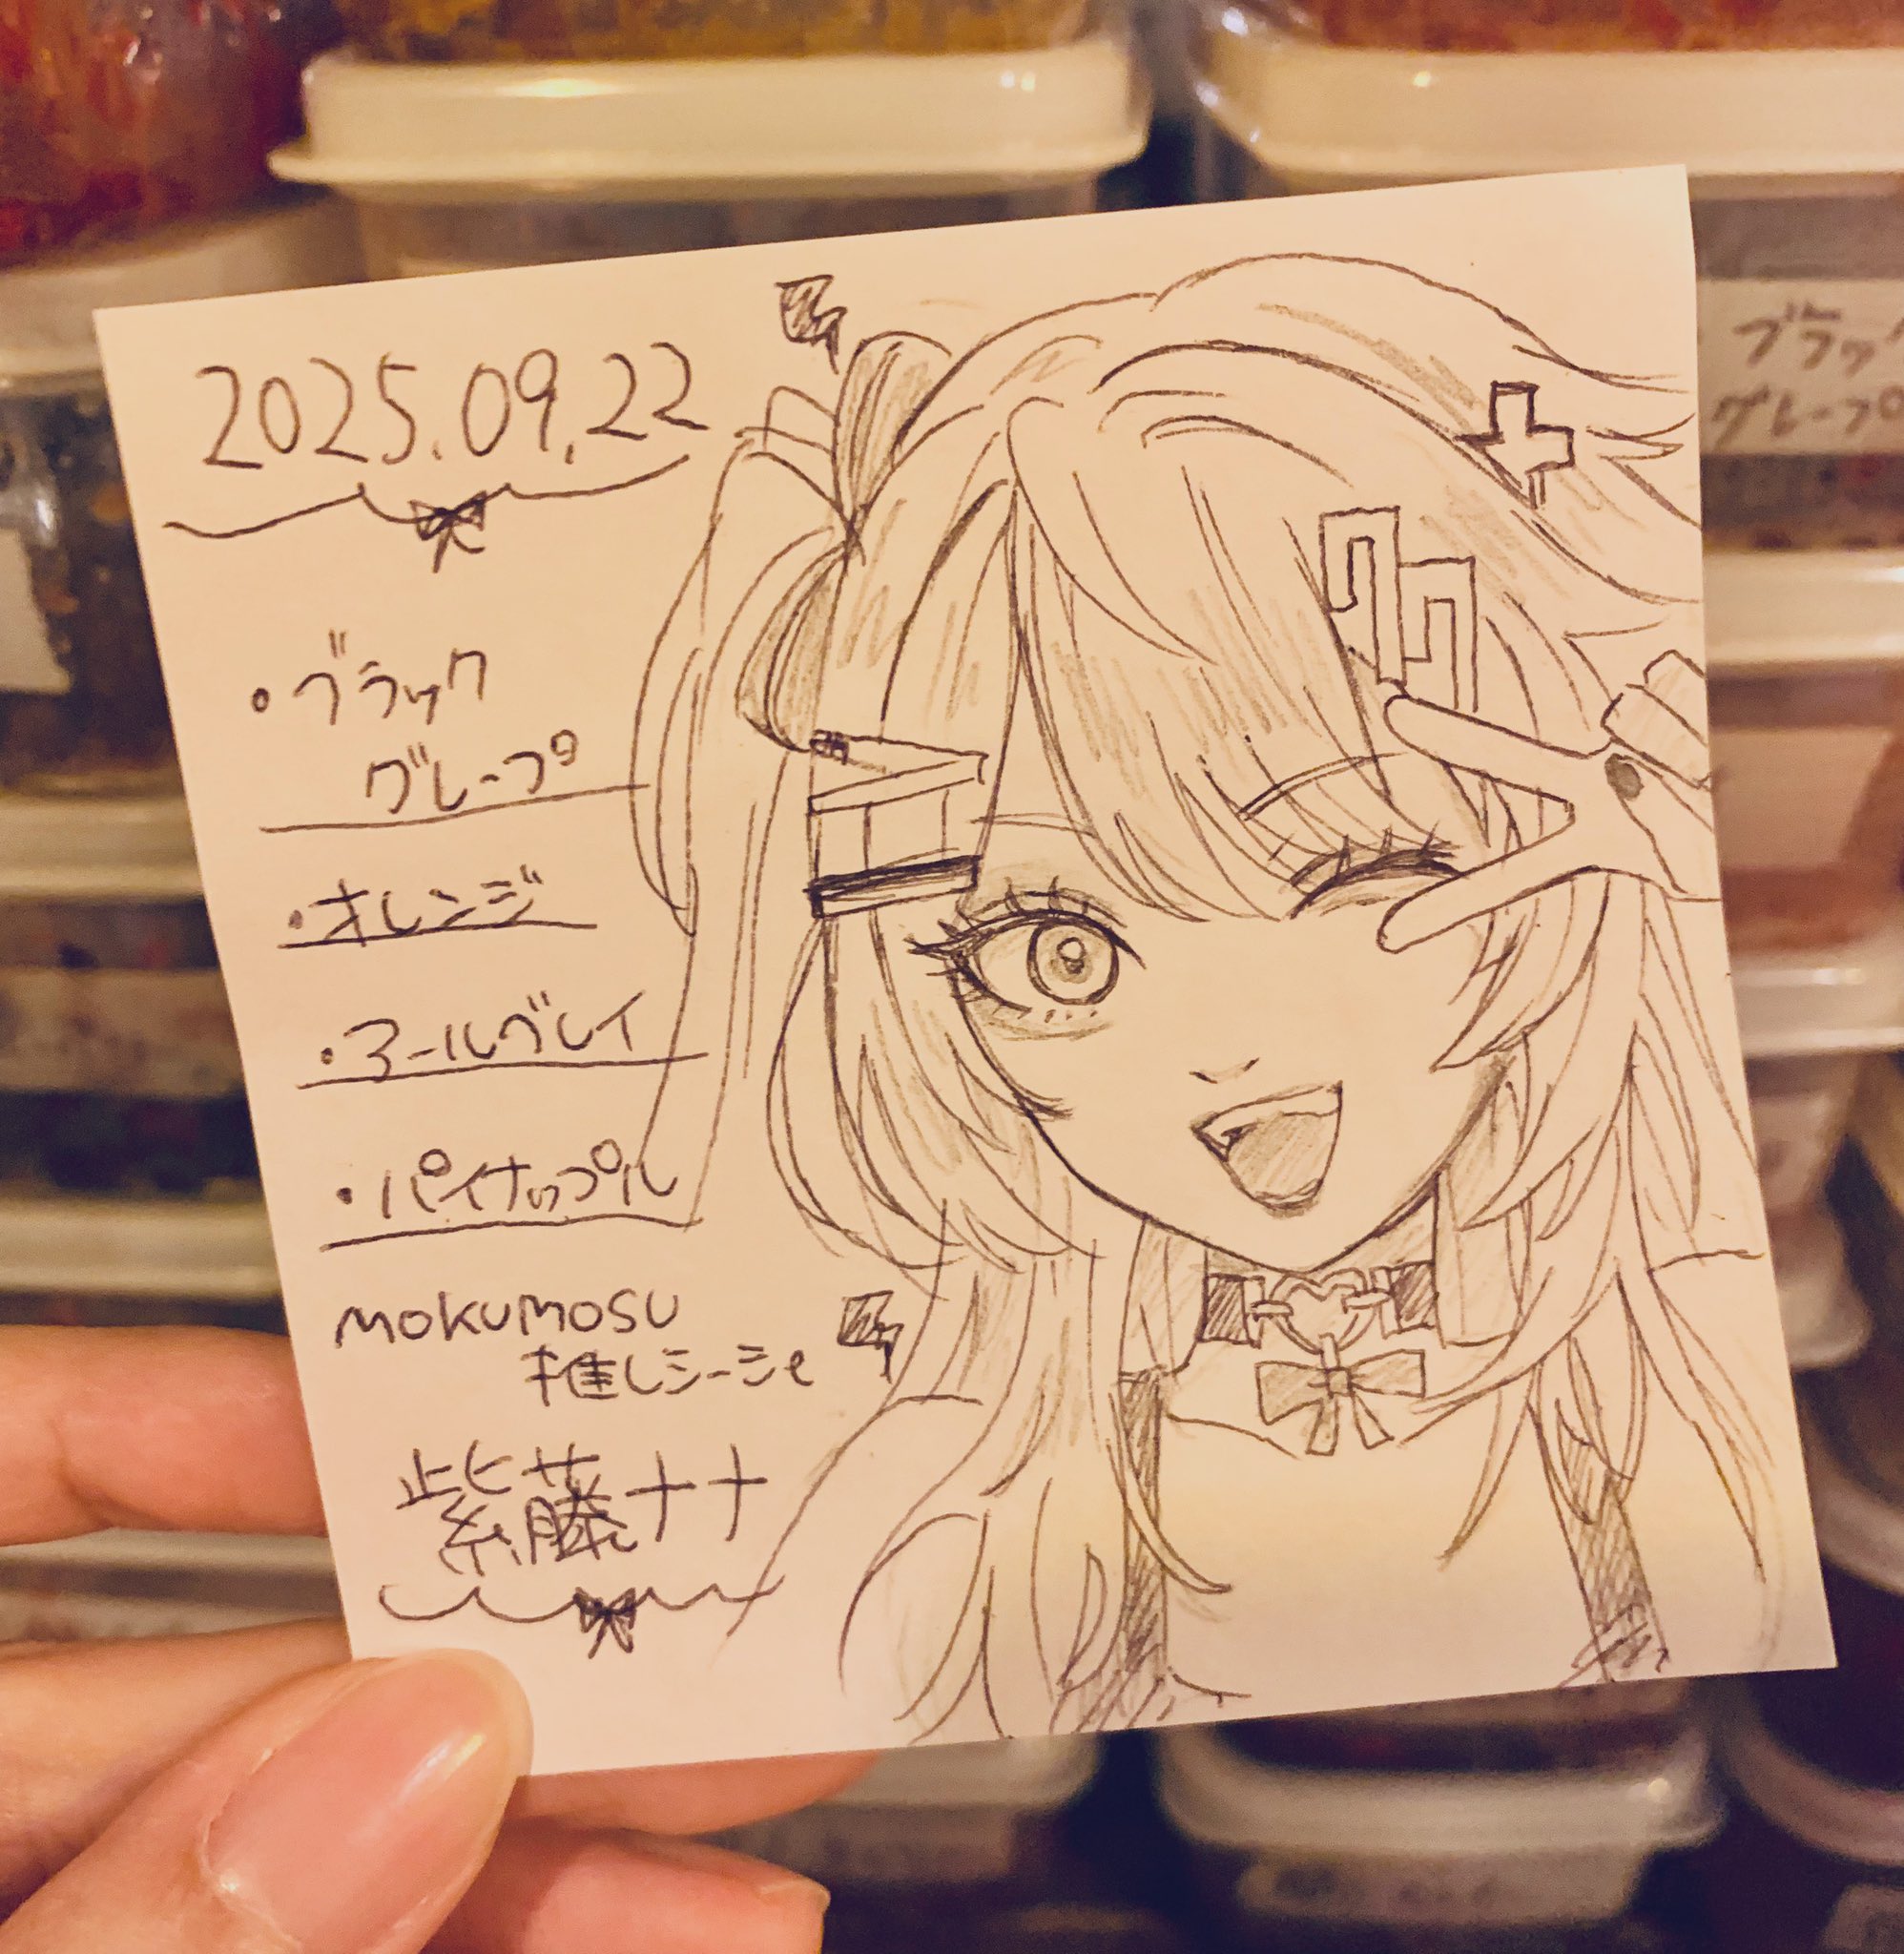 2025.09.22
・ブラック
グレープ
・オレンジ
・アールグレイ
・パイナップル
MOKUMOSU
推しシーシャ
紫藤ナナ
77
ブラック
グレープ